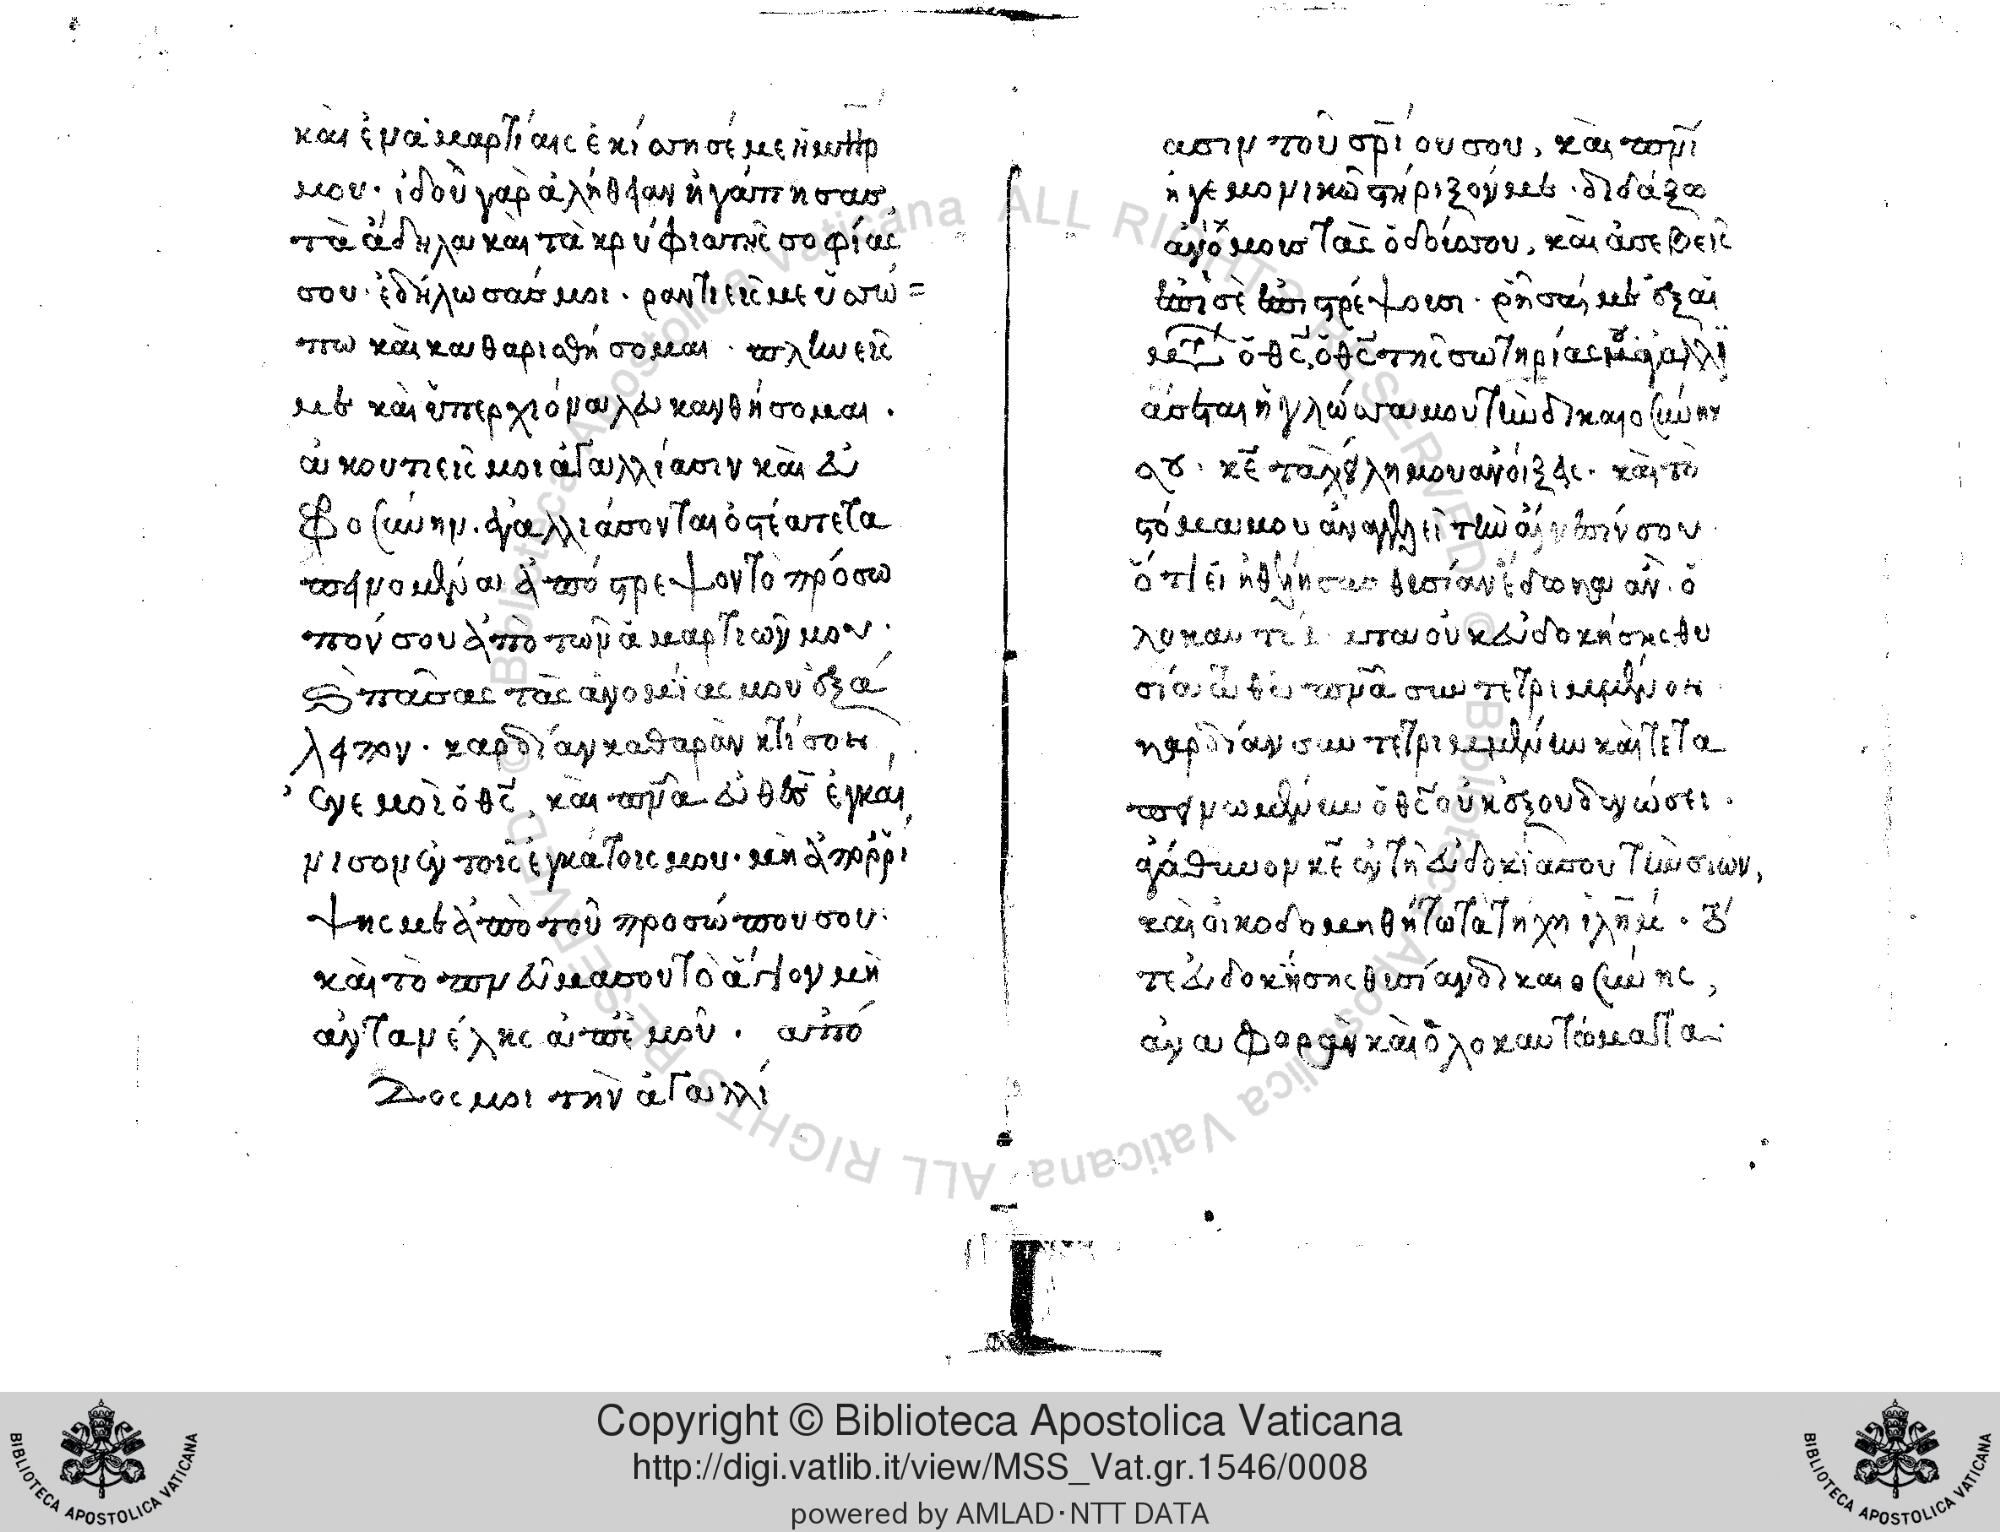 καὶ ἐν ἁμαρτίαις ἐκίσησέ με ἡ μητηρ
μου· ἰδοῦ γὰρ ἀλήθειαν ἠγάπησας,
τὰ ἄδηλα καὶ τὰ κρύφια τῆς σοφίας
σου· ἐδήλωσάς μοι· ραντιεῖς με ὑσσώ=
πω καὶ καθαρισθήσομαι· πλυνεῖς
με καὶ ὕπερ χιόνα λευκανθήσομαι·
ἀκουτιεῖς μοι ἀγαλλίασιν καὶ εὐ
φροσύνην· ἀγαλλιάσονται ὀστέα τετα
πεινομένα ἀπόστρεψον τὸ πρόσω
πόν σου ἀπὸ τῶν ἁμαρτιῶν μου·
ϗ πᾶσας τὰς ἀνομίας μου ἐξά
λειψον· καρδίαν καθαρὰν κτίσον
ἐν ἐμοὶ ὁ θς, καὶ πνᾶ εὐθὲς ἐγκαί,
νισον ἐν τοῖς ἐγκάτοις μου· μὴ ἀπορρί
ψης με ἀπὸ τοῦ προσώπου σου·
καὶ τὸ πνεῦμα σου τὸ ἅγιον μὴ
ἀντανέλης ἀπ' ἐμοῦ· ἀπό
Δος μοι τὴν ἀγαλλί
ασιν τοῦ σρίου σου, καὶ πνῖ
ἡγεμονικῶ στήριξόν με· διδάξω
ἀνόμους τὰς ὁδούς σου, καὶ ἀσεβεῖς
ἐπὶ σὲ ἐπιστρέψουσι· ρῦσαί με ἐξ αἱ
μάτων ὁ θς, ὁ θς τῆς σωτηρίας μου ἀγαλλι
άσεται ἡ γλώσσα μου τὴν δικαιοσύνην
σου· κε τὰ χείλη μου ἀνοίξεις· καὶ τὸ
στόμα μου ἀναγγελεῖ τὴν αἴνεσίν σου·
ὅτι εἰ ἠθέλησας θυσίαν ἔδωκα ἂν· ὁ
λοκαυτώματα οὐκ εὐδοκήσης θυ
σία τῶ θῶ πνᾶ συντετριμμένον
καρδίαν συντετριμμένην καὶ τετα
πεινωμένην ὁ θς οὐκ ἐξουδενώσει·
ἀγάθυνον κε ἐν τῆ εὐδοκία σου τὴν σιων,
καὶ οἰκοδομηθήτω τὰ τείχη ἱλημ· τό
τε εὐδοκήσης θυσίαν δικαιοσύνης,
ἀναφορὰν καὶ ὁλοκαυτώματα:
Copyright © Biblioteca Apostolica Vaticana
http://digi.vatlib.it/view/MSS_Vat.gr.1546/0008
powered by AMLAD·NTT DATA
BIBLIOTECA APOSTOLICA VATICANA
BIBLIOTECA APOSTOLICA VATICANA
© Biblioteca Apostolica Vaticana ALL RIGHTS RESERVED
© Biblioteca Apostolica Vaticana ALL RIGHTS RESERVED